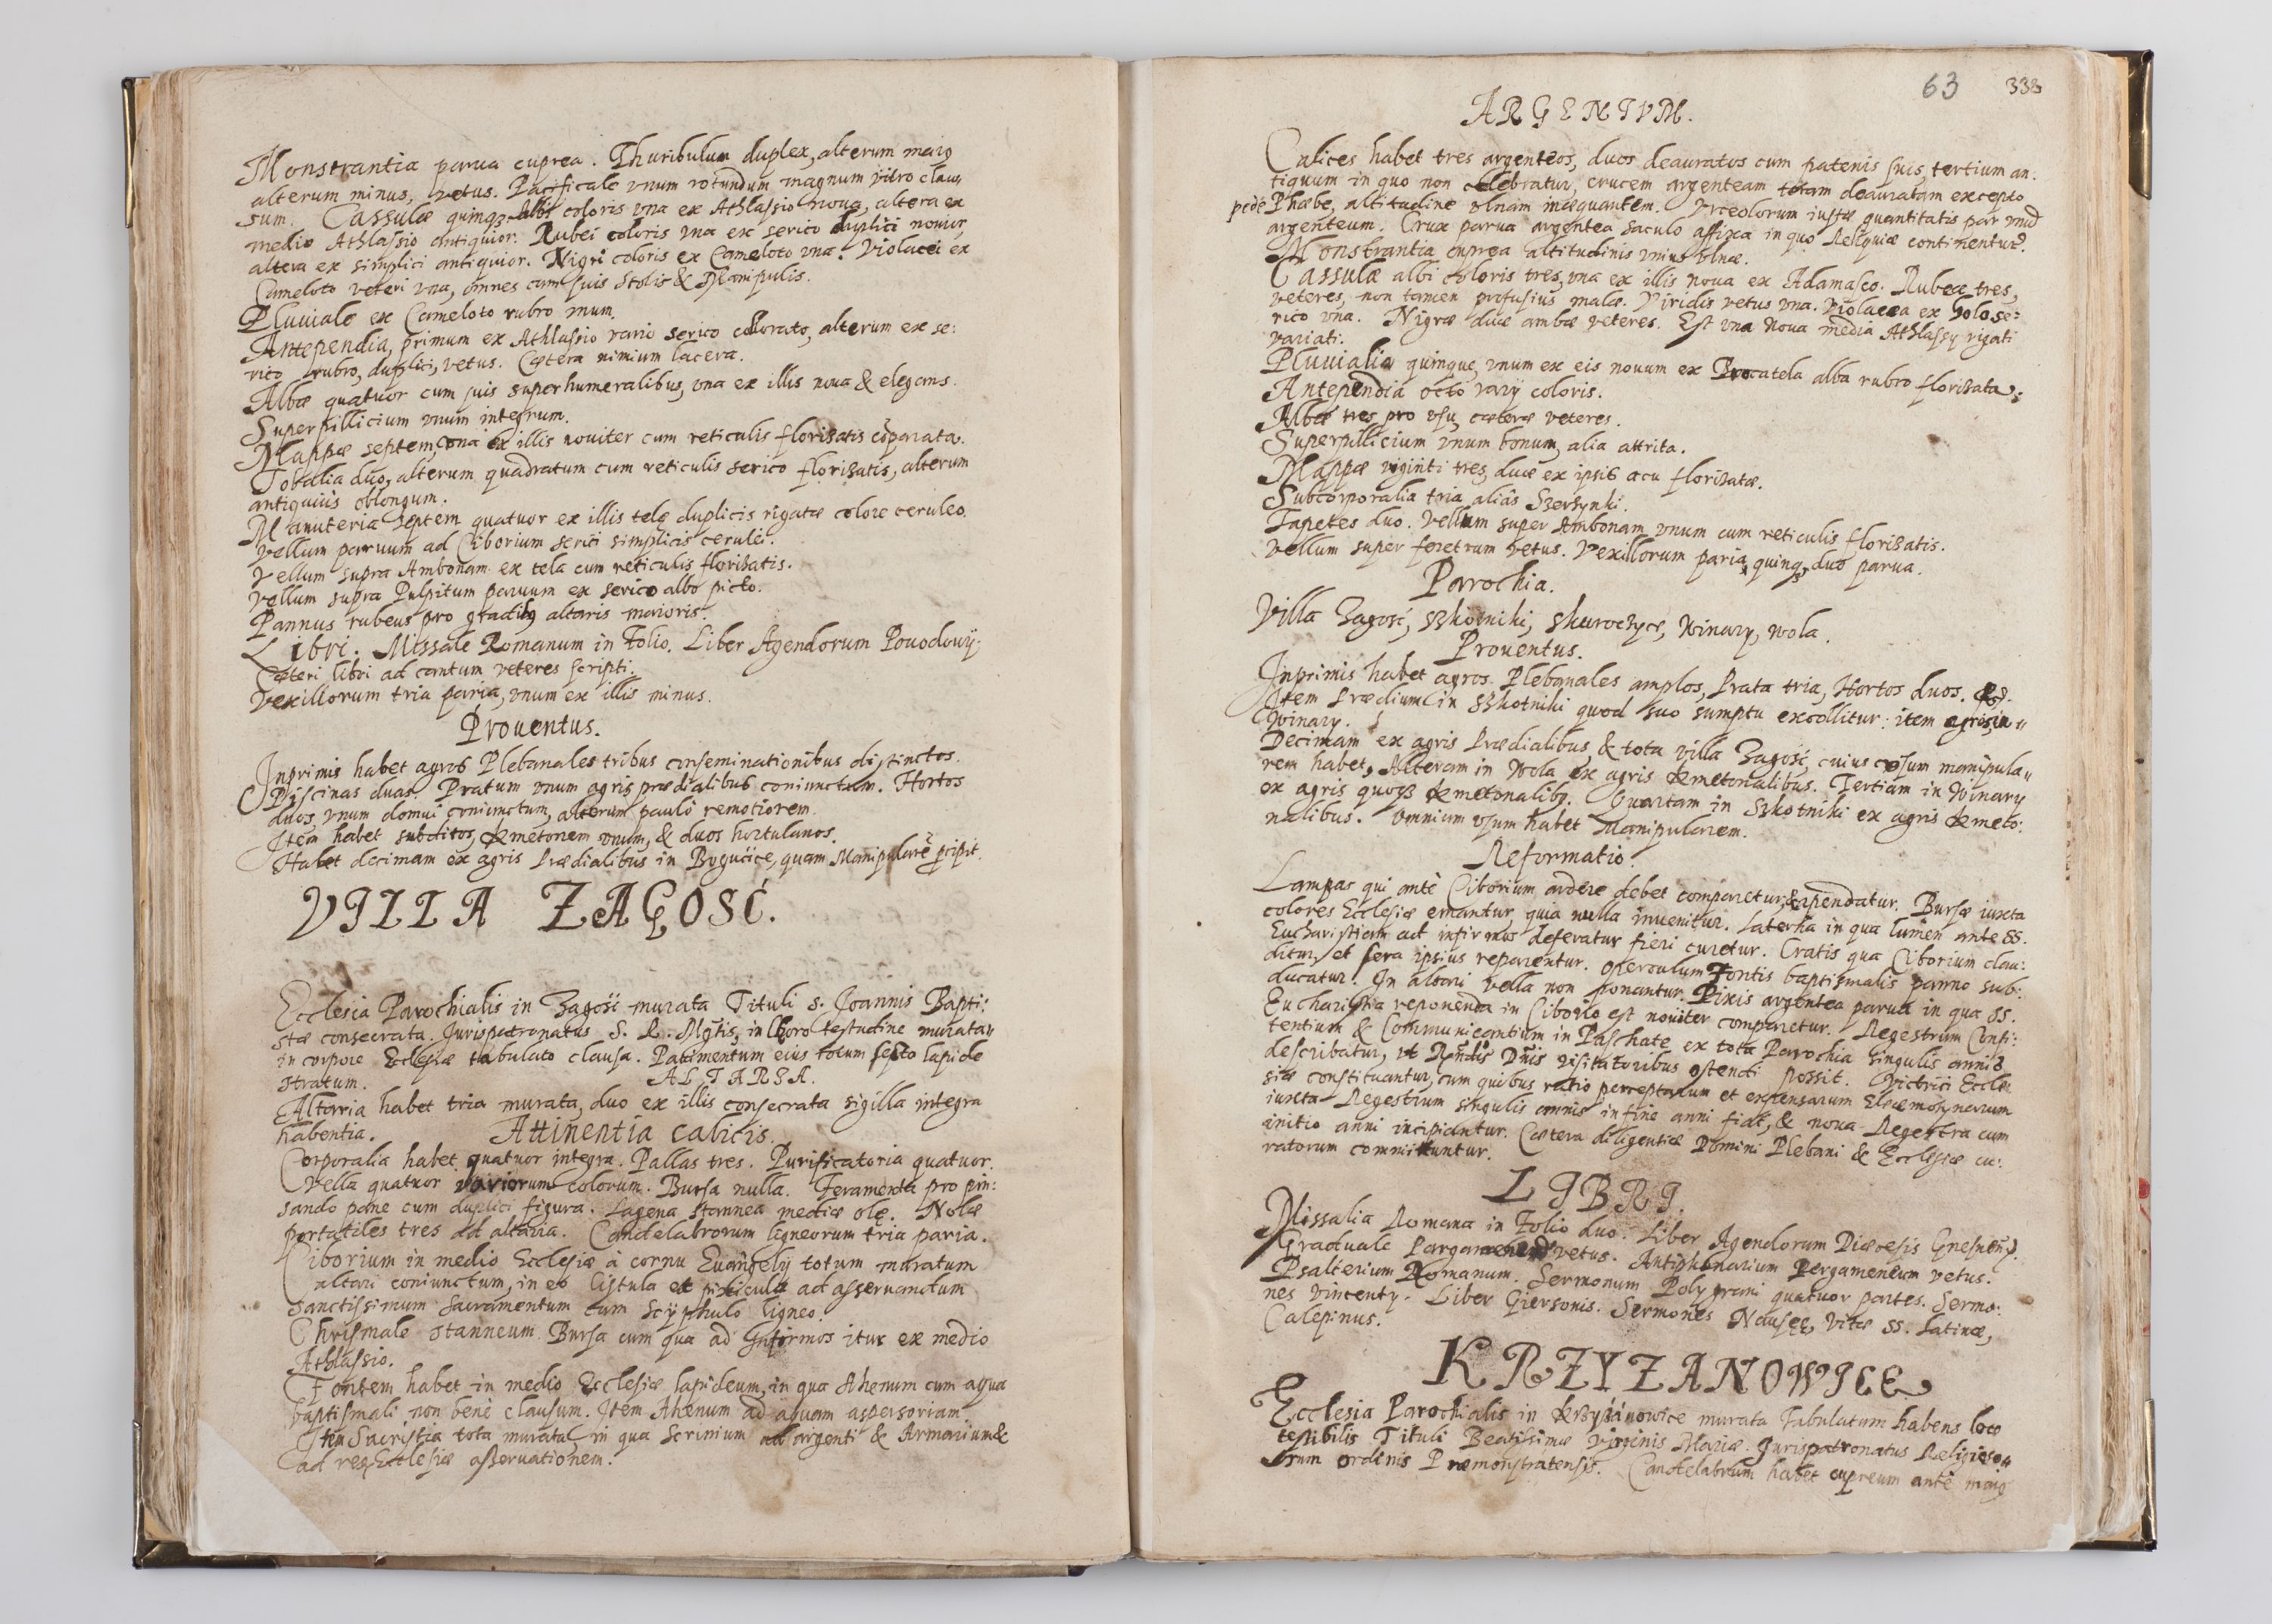 Monstrantia parua cuprea. Thuribulum duplex, alterum maiq
alterum minus, vetus. Pacificale vnum rotundum magnum vitro clau„
sum. Cassulæ quinqȝ. Albi coloris vna ex Athlassio noua, altera ex
medio Athlassio antiquior. Rubei coloris vna ex serico duplici nouior,
altera ex simplici antiquior. Nigri coloris ex Cameloto vna. Violacei ex
Cameloto veteri vna, omnes cum suis Stolis & Manipulis.
Pluuiale ex Cameloto rubro vnum.
Antependia, primum ex Athlassio vario serico colorato, alterum ex se:
rico rubro, duplici, vetus. Cætera nimium lacera.
Albæ quatuor cum suis superhumeralibus, vna ex illis noua & elegans.
Superpillicium vnum integrum.
Mappæ septem, vna ex illis nouiter cum reticulis florisatis cõparata.
Tobalia duo, alterum quadratum cum reticulis serico florisatis, alterum
antiquius oblongum.
Manuteria septem quatuor ex illis telę duplicis rigatæ colore ceruleo.
Vellum paruum ad Ciborium serici simplicis cerulei.
Vellum supra Ambonam ex tela cum reticulis florisatis.
Vellum supra Pulpitum paruum ex serico albo picto.
Pannus rubeus pro gradibq altaris maioris.
Libri. Missale Romanum in Folio. Liber Agendorum Pouodouij;
Cæteri libri ad cantum veteres scripti.
Vexillorum tria paria, vnum ex illis minus.
Prouentus.
Inprimis habet agros Plebanales tribus conseminationibus distinctos.
Piscinas duas. Pratum vnum agris prædialibus coniunctum. Hortos
duos, vnum domui coniunctum, alterum paulò remotiorem.
Item habet subditos, Kmetonem vnum, & duos hortulanos.
Habet decimam ex agris Prædialibus in Bogucice, quam Manipularẽ ꝑcipit.
VILLA ZAGOSĆ.
Ecclesia Parochialis in Zagość murata Tituli S. Joannis Bapti:
stæ consecrata. Jurispatronatus S. R. Mgtis, in Choro testudine murata„
in corpore Ecclesiæ tabulato clausa. Pauimentum eius totum secto lapide
stratum.
ALTARIA.
Altaria habet tria murata, duo ex illis consecrata sigilla integra
habentia.
Attinentia calicis.
Corporalia habet quatuor integra. Pallas tres. Purificatoria quatuor.
Vella quatuor variorum colorum. Bursa nulla. Feramenta pro pin:
sando pane cum duplici figura. Lagena stannea mediæ olę. Nolæ
portatiles tres ad altaria. Candelabrorum ligneorum tria paria.
Ciborium in medio Ecclesiæ à cornu Euangelij totum muratum
altari coniunctum, in eo Cistula et pixicula ad asseruandum
Sanctissimum Sacramentum cum Scijphulo ligneo.
Chrismale stanneum. Bursa cum qua ad Infirmos itur ex medio
Athlassio.
Fontem habet in medio Ecclesiæ lapideum, in qua Ahenum cum aqua
baptismali non benè clausum. Item Ahenum ad aquam aspersoriam.
Item Sacristia tota murata, in qua Scrinium ad argenti & Armarium &
ad reqȝ Ecclesiæ asseruationem.
63 338
ARGENTVM.
Calices habet tres argenteos, duos deauratos cum patenis suis, tertium an:
tiquum in quo non celebratur, crucem argenteam totam deauratam excepto
pede Phæbe, altitudine vlnam inæquantem. Vrceolorum iustæ quantitatis par vnũ
argenteum. Crux parua argentea saculo affixa in quo Reliquiæ continentur.
Monstrantia cuprea altitudinis vnius vlnæ.
Cassulæ albi coloris tres, vna ex illis noua ex Adamasco. Rubeæ tres,
veteres, non tamen profusius malæ. Viridis vetus vna. Violacea ex holose:
rico vna. Nigræ duæ ambæ veteres. Est vna noua media Athlassij rigati
variati.
Pluuialia quinque, vnum ex eis nouum ex Brocatela alba rubro florisata;
Antependia octo varij coloris.
Albæ tres pro vsu, cæteræ veteres.
Superpillicium vnum bonum, alia attrita.
Mappæ viginti tres, duæ ex ipsis acu florisatæ.
Subcorporalia tria aliàs Szerzynki.
Tapetes duo. Vellum super Ambonam vnum cum reticulis florisatis.
Vellum super feretrum vetus. Vexillorum paria quinqȝ, duo parua.
Parochia.
Villa Zagość, Szkotniki, Skuroczyce, Winary, Wola.
Prouentus.
Inprimis habet agros Plebanales amplos, Prata tria, Hortos duos.
Item Prædium in Szkotniki quod suo sumptu excollitur: item agros in„
Winary.
Decimam ex agris Prædialibus & tota villa Zagość, cuius vsum manipula„
rem habet, Alteram in Wola ex agris Kmetonalibus. Tertiam in Winary
ex agris quoqȝ Kmetonalibq. Quartam in Szkotniki ex agris Kmeto:
nalibus. Omnium vsum habet Manipularem.
Reformatio.
Lampas qui antè Ciborium ardere debet comparetur, & apendatur. Bursæ iuxta
colores Ecclesiæ emantur, quia nulla inuenitur. Laterna in qua lumen ante SS.
Eucharistiam ad infirmos deferatur fieri curetur. Cratis qua Ciborium clau:
ditur, et sera ipsius reparentur. Operculum Fontis baptismalis panno sub:
ducatur. In altari vella non ponantur. Pixis argentea parua in qua SS.
Eucharistia reponenda in Ciborio est nouiter comparetur. Regestrum Confi:
tentium & Communicantium in Paschate ex tota Parochia singulis annis
describatur, vt Rndis Dnis visitatoribus ostendi possit. Victrici Eccle:
siæ constituantur, cum quibus ratio perceptarum et expensarum Eleemosynarum
iuxta Regestrum singulis annis in fine anni fiat, & noua Regestra cum
initio anni incipiantur. Cætera diligentiæ Domini Plebani & Ecclesiæ cu:
ratorum committuntur.
LIBRI.
Missalia Romana in Folio duo. Liber Agendorum Diæcesis Gnesnen.
Graduale vetus. Antiphonarium Pergameneum vetus.
Psalterium Romanum. Sermonum Polygrani quatuor partes. Sermo:
nes Vincenty. Liber Giersonis. Sermones Nauseę, Vitæ SS. Latinæ,
Calepinus.
KRZYZANOWICE
Ecclesia Parochialis in Krzyżanowice murata Tabulatum habens loco
testibilis Tituli Beatissimæ Virginis Mariæ. Jurispatronatus Religioso„
rum ordinis Præmonstratensis. Candelabrum habet cupreum antè maiq